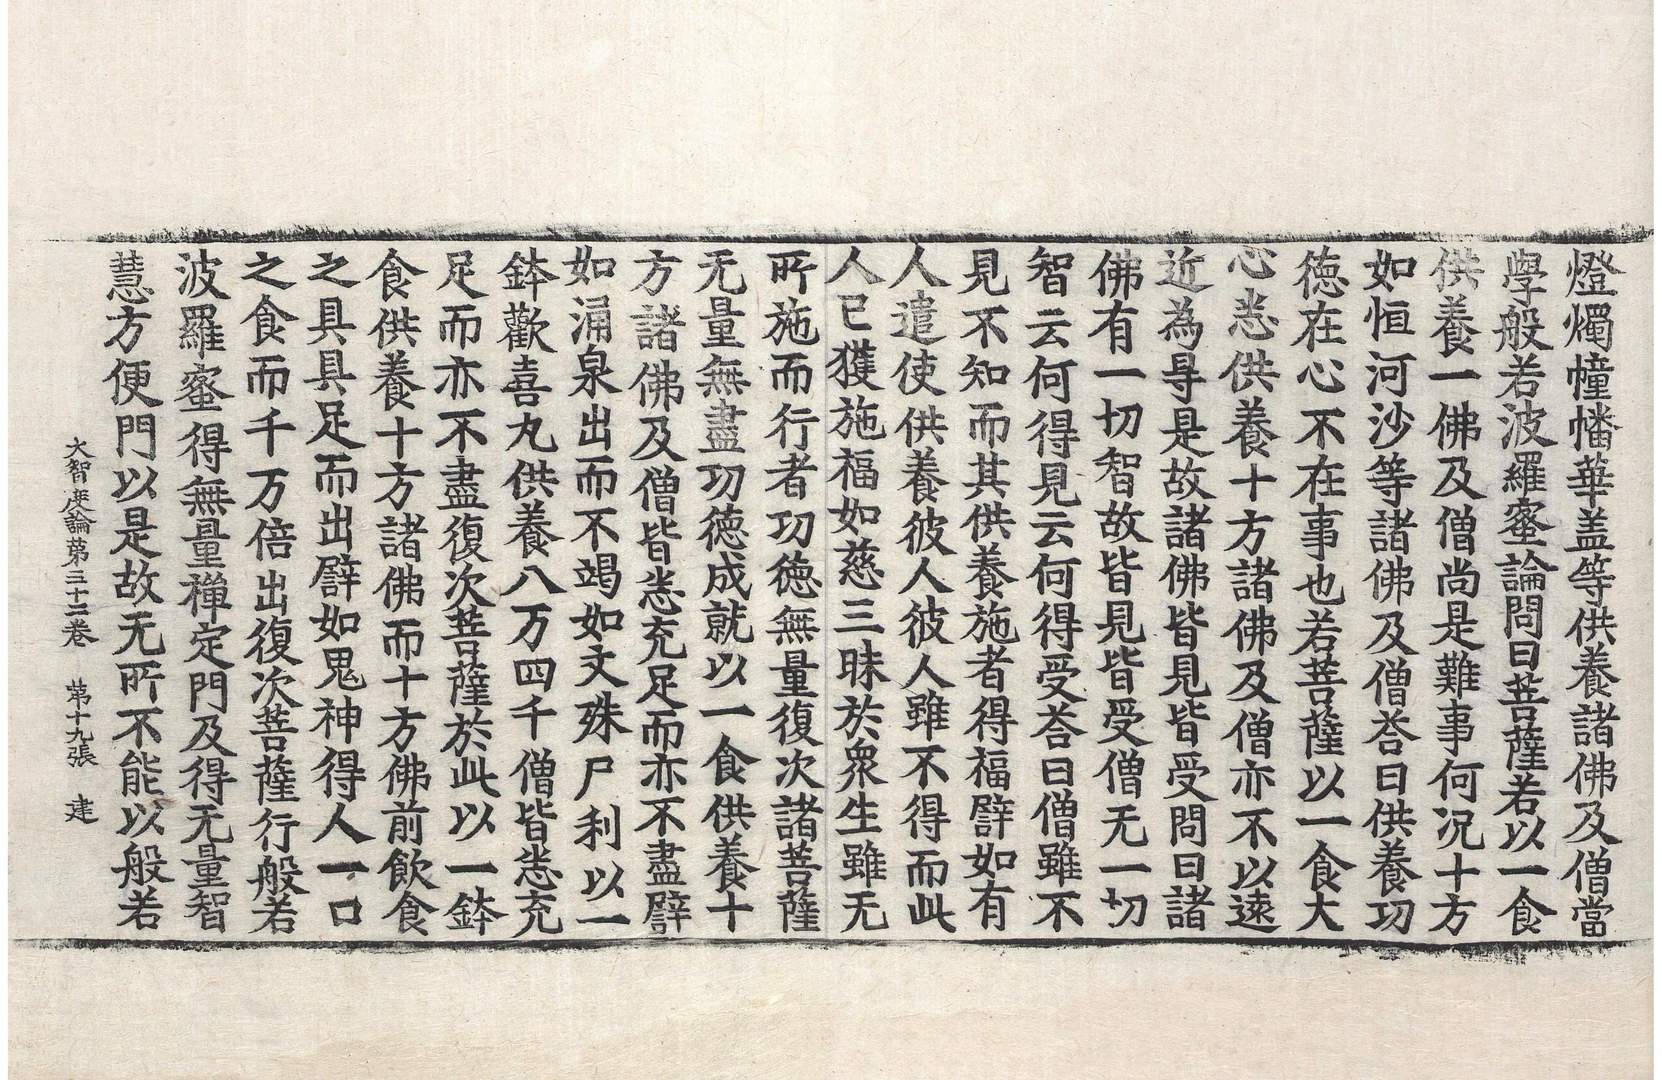 燈燭幢幡華盖等供養諸佛及僧當
學般若波羅蜜論問曰菩薩若以一食
供養一佛及僧尚是難事何況十方
如恒河沙等諸佛及僧荅曰供養功
德在心不在事也若菩薩以一食大
心悉供養十方諸佛及僧亦不以遠
近為㝵是故諸佛皆見皆受問曰諸
佛有一切智故皆見皆受僧无一切
智云何得見云何得受荅曰僧雖不
見不知而其供養施者得福譬如有
人遣使供養彼人彼人雖不得而此
人已獲施福如慈三昧於衆生雖无
所施而行者功德無量復次諸菩薩
无量無盡功德成就以一食供養十
方諸佛及僧皆悉充足而亦不盡譬
如涌泉出而不竭如文殊尸利以一
鉢歡喜丸供養八万四千僧皆悉充
足而亦不盡復次菩薩於此以一鉢
食供養十方諸佛而十方佛前飲食
之具具足而出譬如鬼神得人一口
之食而千万倍出復次菩薩行般若
波羅蜜得無量禪定門及得无量智
慧方便門以是故无所不能以般若
大智度論第三十二卷 第十九張 建